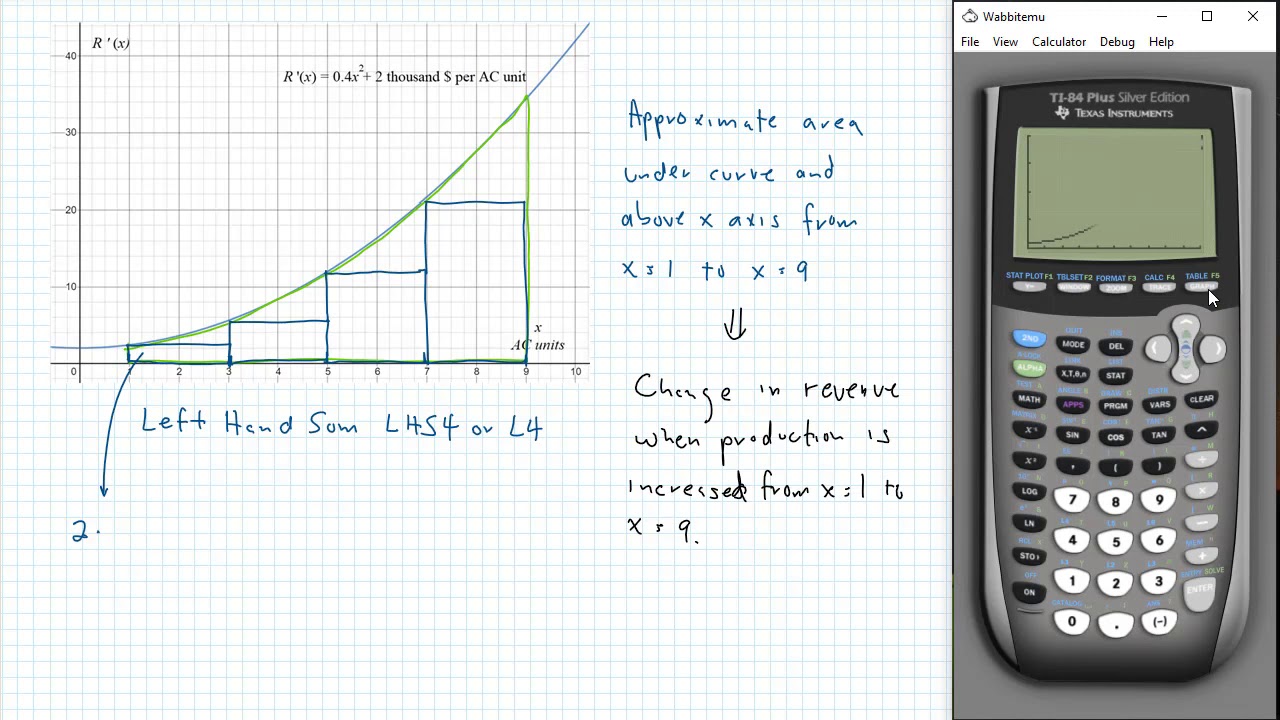 R '(x)
R '(x) = 0.4x²+ 2 thousand $ per AC unit
40
30
20
10
0 1 2 3 4 5 6 7 8 9 10
x
AC units
Left Hand Sum LHS4 or L4
2.
Approximate area
under curve and
above x axis from
x = 1 to x = 9
⇓
Change in revenue
when production is
increased from x = 1 to
x = 9.
Wabbitemu
File View Calculator Debug Help
TI-84 Plus Silver Edition
TEXAS INSTRUMENTS
STAT PLOT F1 TBLSET F2 FORMAT F3 CALC F4 TABLE F5
Y= WINDOW ZOOM TRACE GRAPH
QUIT INS
2ND MODE DEL
A-LOCK LINK LIST
ALPHA X,T,θ,n STAT
TEST A ANGLE B DRAW C DISTR
MATH APPS PRGM VARS CLEAR
SIN COS TAN ^
x² , ( )
LOG 7 8 9 ×
LN 4 5 6 −
STO 1 2 3 +
OFF CATALOG ENTRY SOLVE
ON 0 . (-) ENTER